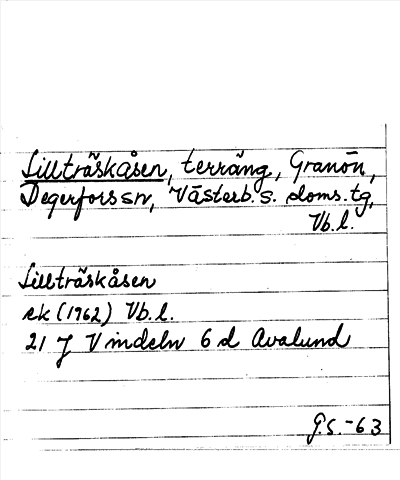 Lillträskåsen, terräng, Granön,
Degerfors sn, Västerb. s. doms. tg,
Vb. l.
Lillträskåsen
ek (1962) Vb. l.
21 J Vindeln 6 d Avalund
G.S. -63